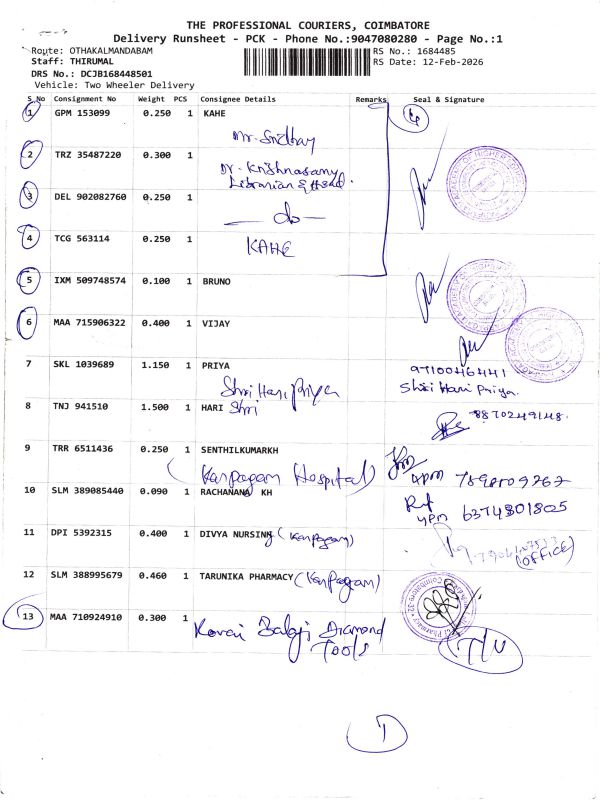 THE PROFESSIONAL COURIERS, COIMBATORE
Delivery Runsheet - PCK - Phone No.:9047080280 - Page No.:1
Route: OTHAKALMANDABAM
RS No.: 1684485
Staff: THIRUMAL
RS Date: 12-Feb-2026
DRS No.: DCJB168448501
Vehicle: Two Wheeler Delivery
S No Consignment No Weight PCS Consignee Details Remarks Seal & Signature
1 GPM 153099 0.250 1 KAHE
Mr. Sridhay
2 TRZ 35487220 0.300 1
Dr. Krishnasamy
Librarian & Head.
3 DEL 902082760 0.250 1
— do —
4 TCG 563114 0.250 1
KAHE
5 IXM 509748574 0.100 1 BRUNO
6 MAA 715906322 0.400 1 VIJAY
7 SKL 1039689 1.150 1 PRIYA
9710046441
Shri Hari Priya
Shri Hari Priya.
8 TNJ 941510 1.500 1 HARI Shri
8870249148.
9 TRR 6511436 0.250 1 SENTHILKUMARKH
(Karpagam Hospital)
4pm
10 SLM 389085440 0.090 1 RACHANANA KH
4pm 6374801805
11 DPI 5392315 0.400 1 DIVYA NURSING (Karpagam)
(OFFICE)
12 SLM 388995679 0.460 1 TARUNIKA PHARMACY (Karpagam)
13 MAA 710924910 0.300 1 Kovai Balaji Diamond
Tools
T/U
1